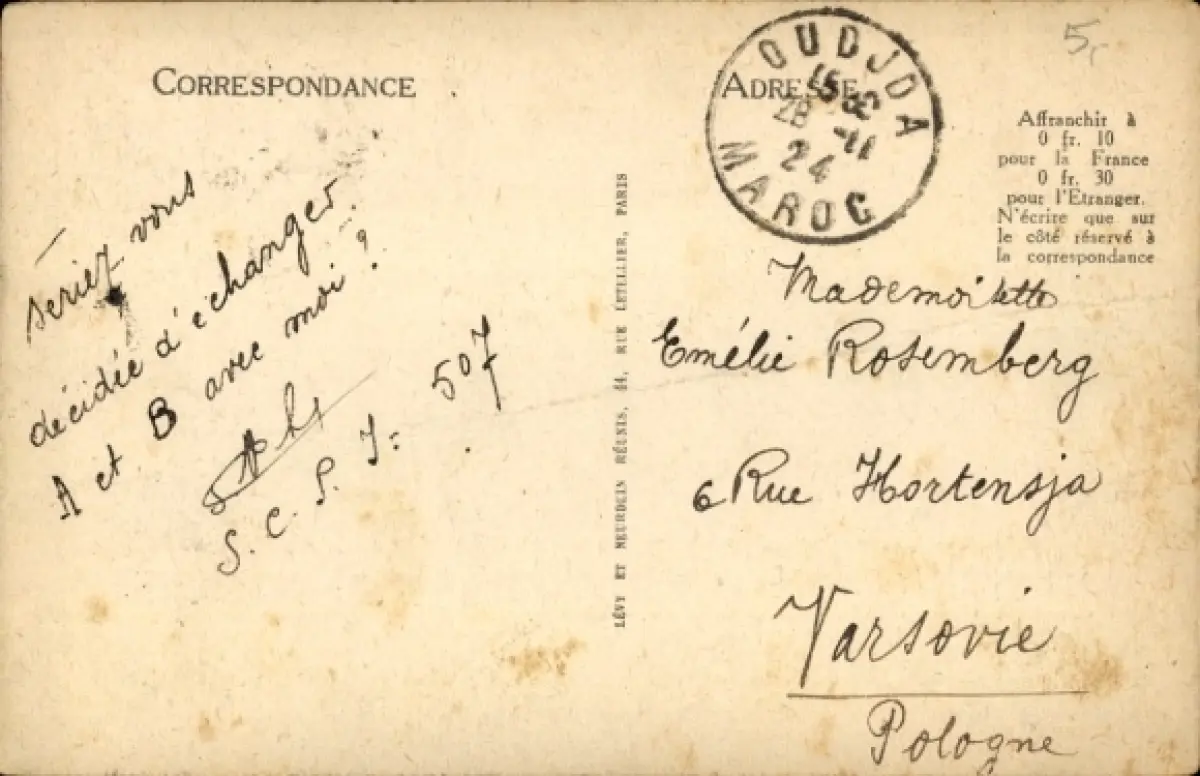 CORRESPONDANCE
seriez vous
décidée d'échanger
A et B avec moi ?
S. C. S. J= 507
LÉVY ET NEURDEIN RÉUNIS, 44, RUE LETELLIER, PARIS
ADRESSE
OUDJDA
28 -11
24
MAROC
5,
Affranchir à
0 fr. 10
pour la France
0 fr. 30
pour l'Etranger.
N'écrire que sur
le côté réservé à
la correspondance
Mademoiselle
Emélie Rosemberg
6 Rue Hortensja
Varsovie
Pologne